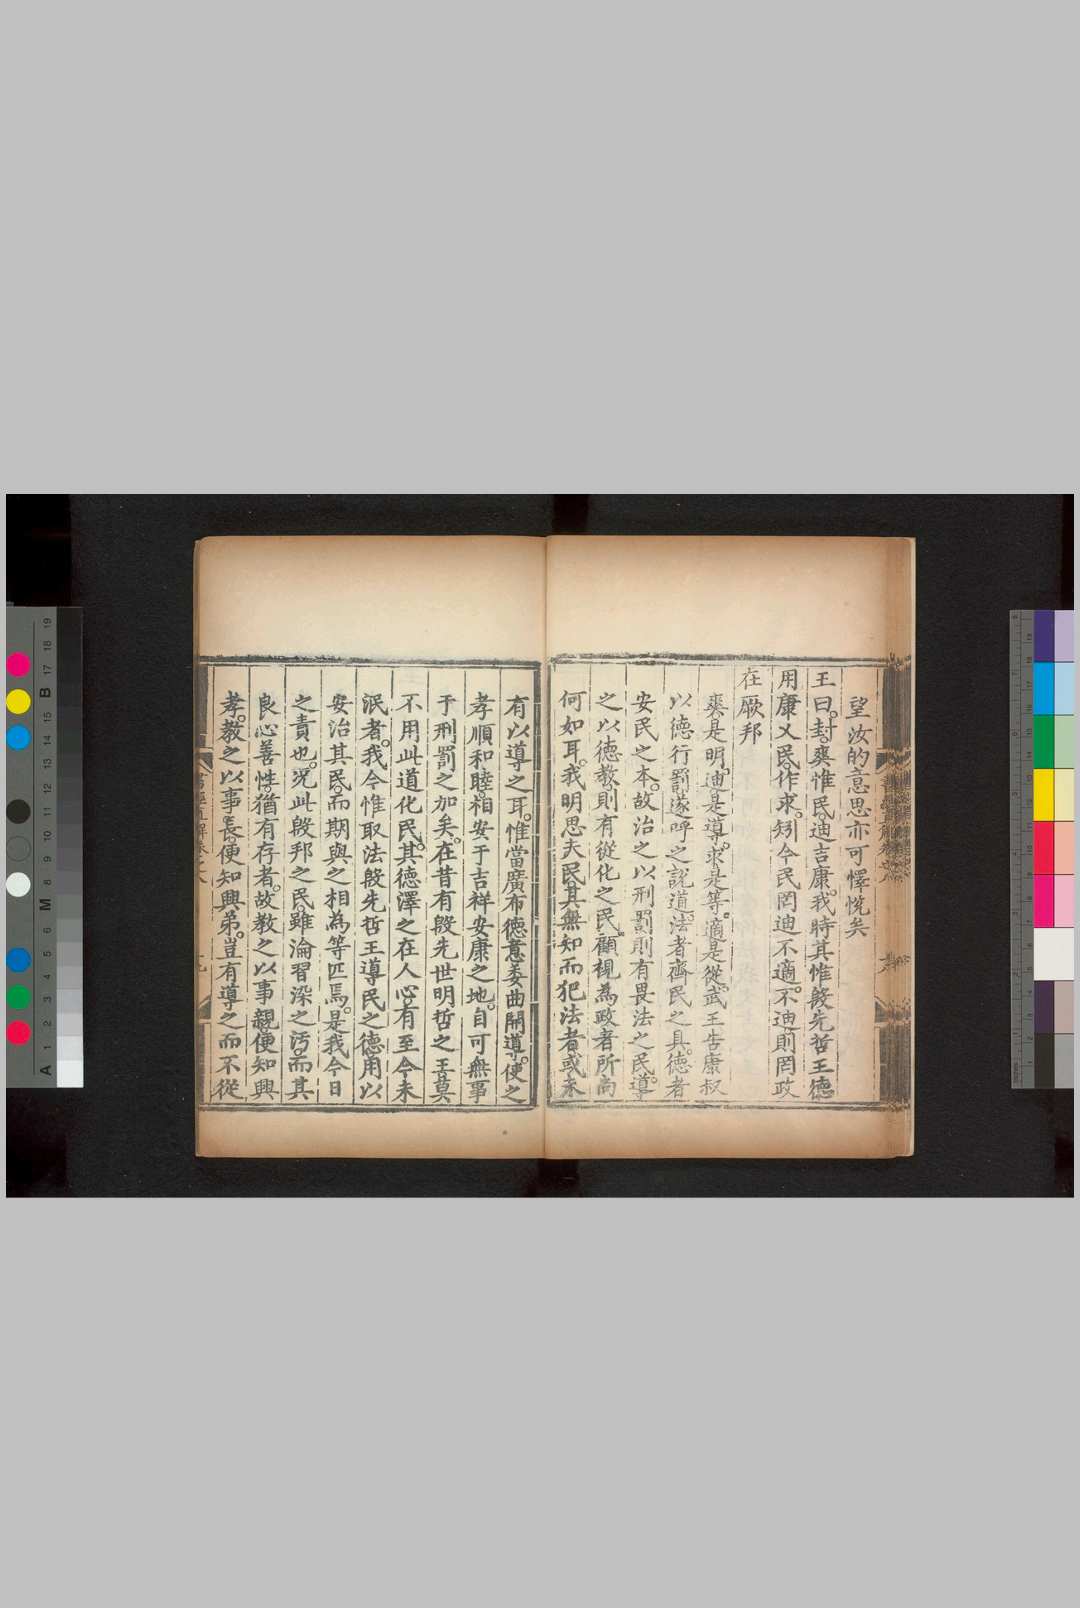 望汝的意思亦可懌悅矣
王曰。封。爽惟民。迪吉康。我時其惟殷先哲王德
用康乂民。作求。矧今民罔迪不適。不迪。則罔政
在厥邦
爽是明。迪是導。求是等。適是從。武王告康叔
以德行罰。遂呼之說道。法者齊民之具。德者
安民之本。故治之以刑罰。則有畏法之民。導
之以德教。則有從化之民。顧視為政者所向
何如耳。我明思夫民。其無知而犯法者。或未
有以導之耳。惟當廣布德意。委曲開導。使之
孝順和睦。相安于吉祥安康之地。自可無事
于刑罰之加矣。在昔有殷先世明哲之王。莫
不用此道化民。其德澤之在人心。有至今未
泯者。我今惟取法殷先哲王導民之德。用以
安治其民。而期與之相為等匹焉。是我今日
之責也。况此殷邦之民。雖淪習染之污。而其
良心善性。猶有存者。故教之以事親。便知興
孝。教之以事長。便知興弟。豈有導之而不從
書經直解卷之八